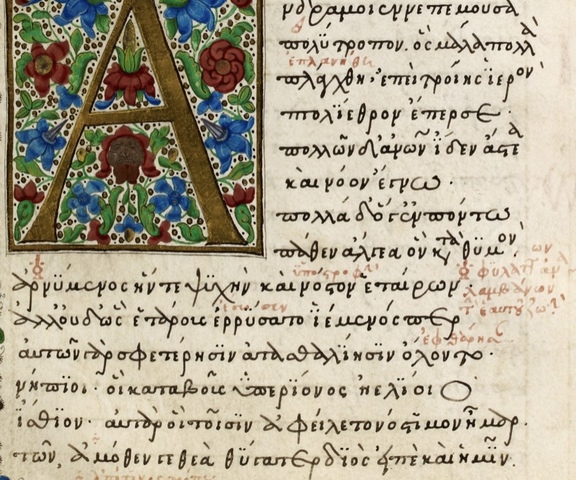 Ἀνδρά μοι ἔννεπε μοῦσα
πολύτροπον. ὃς μάλα πολλὰ
ἐπλανήθη
πλάγχθη, ἐπεὶ τροίης ἱερὸν
πτολίεθρον ἔπερσε·
πολλῶν δ' ἀνων ἴδεν ἄστεα
καὶ νόον ἔγνω·
πολλὰ δ' ὅγ' ἐν πόντω
πάθεν ἄλγεα ὃν κατὰ θυμόν
ἀρνύμενος ἥν τε ψυχὴν καὶ νόστον ἑταίρων·
ἀλλ' οὐδ' ὣς ἑτάρους ἐρρύσατο ἱέμενός περ
αὐτῶν γὰρ σφετέρησιν ἀτασθαλίησιν ὄλοντο·
νήπιοι· οἳ κατὰ βοῦς ὑπερίονος ἠελίοιο
ἤσθιον· αὐτὰρ ὁ τοῖσιν ἀφείλετο νόστιμον ἦμαρ.
τῶν, ἁμόθεν γε θεὰ θύγατερ διὸς εἰπὲ καὶ ἡμῖν.